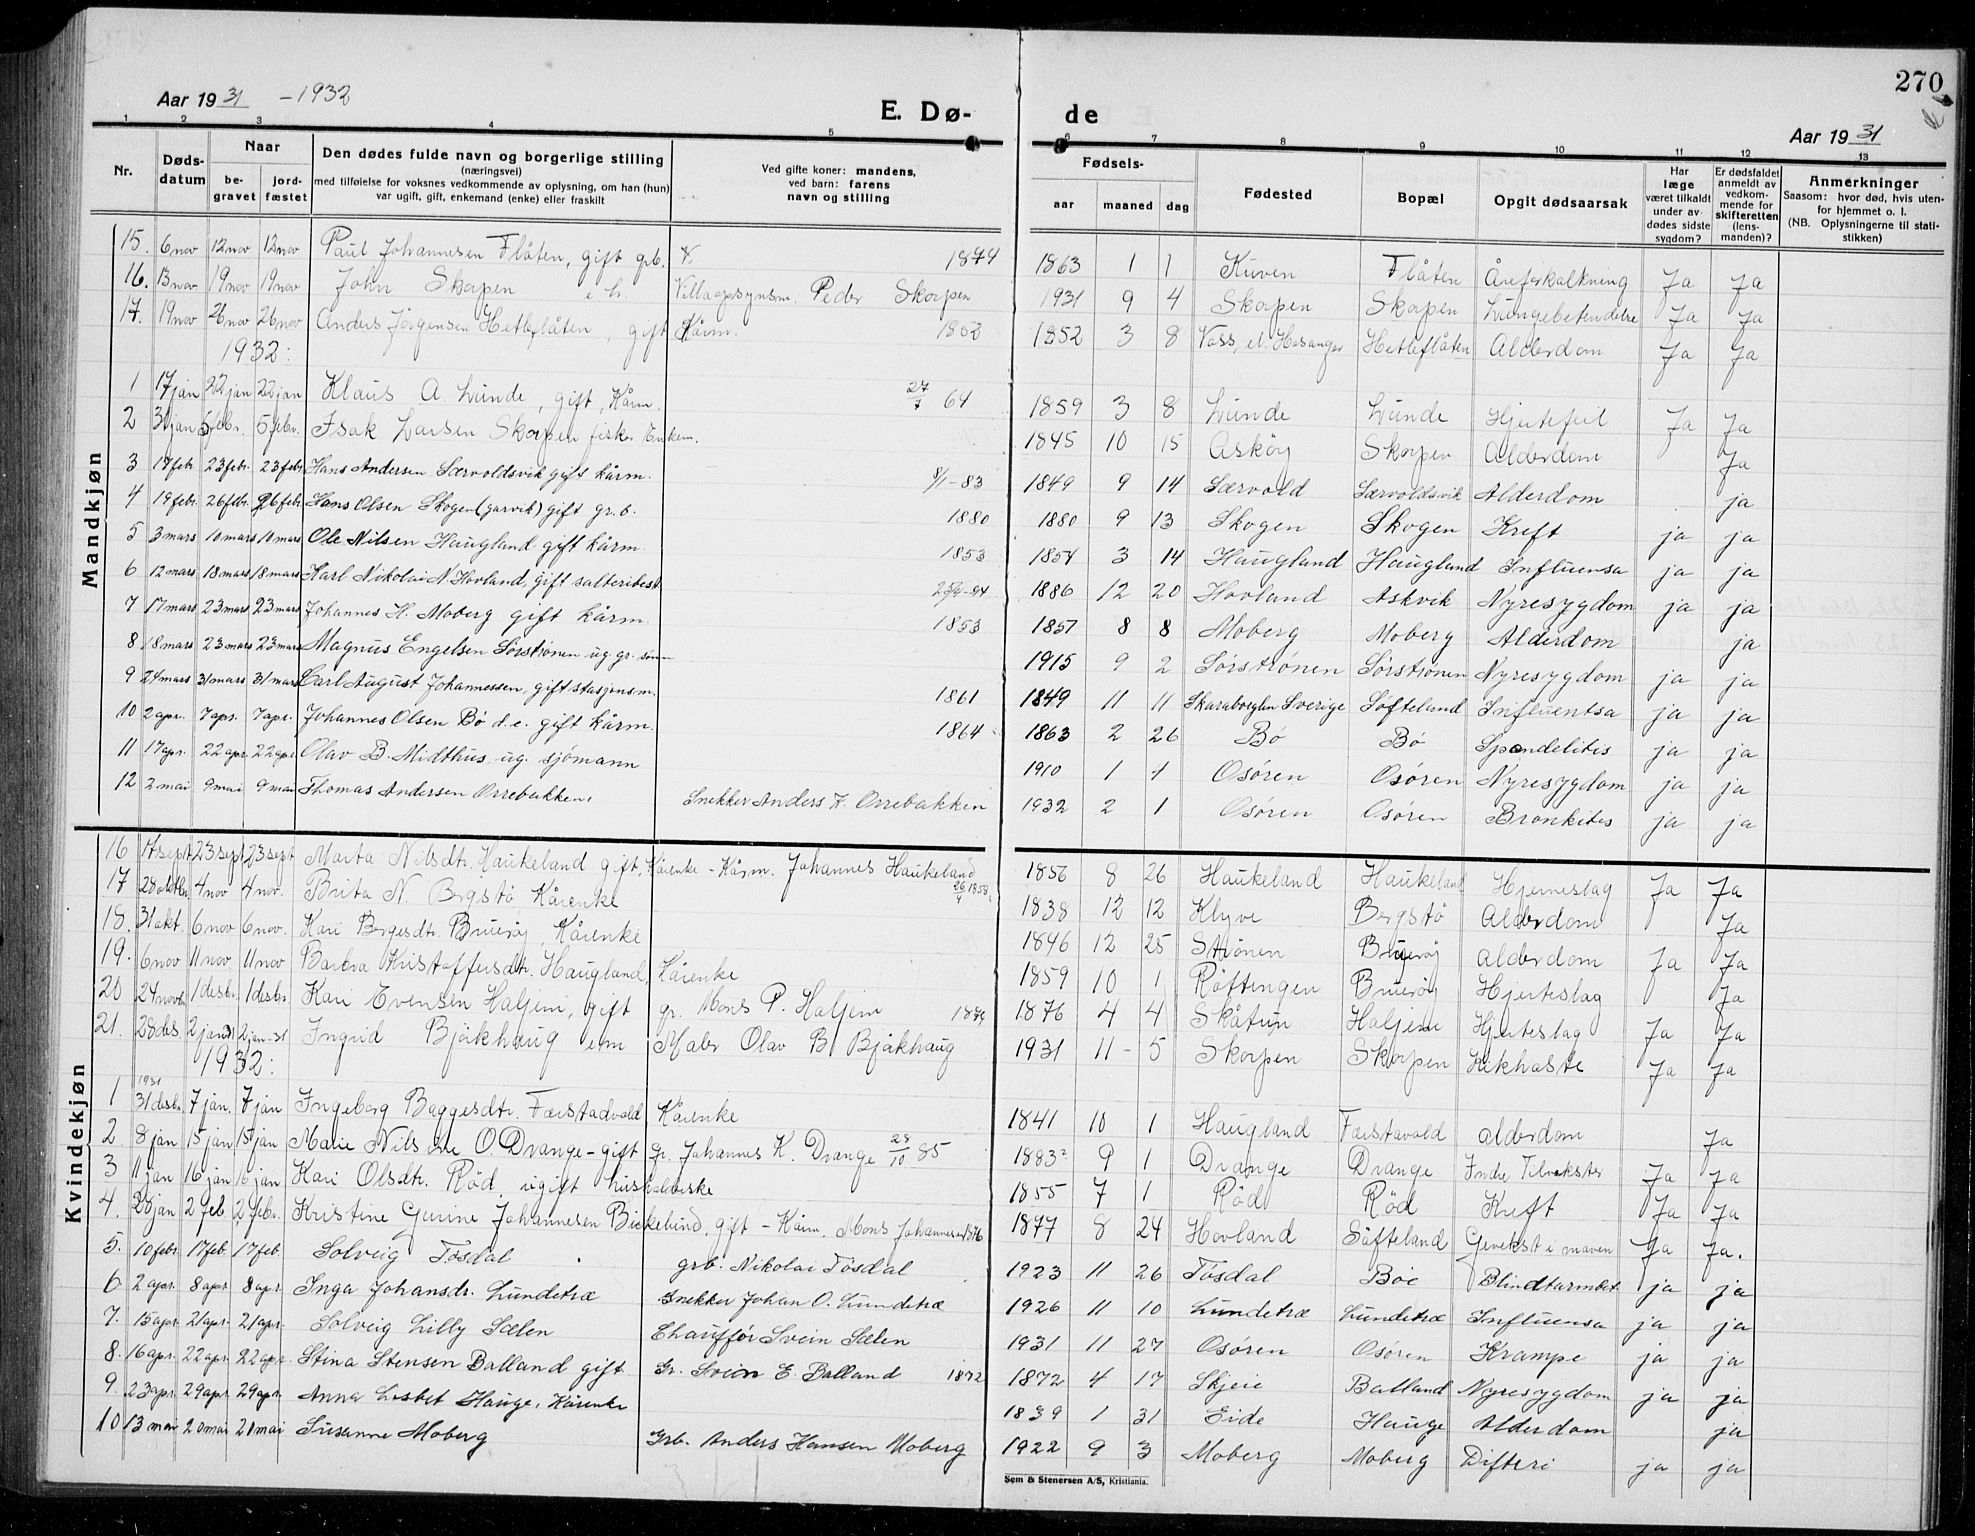 270
Aar 1931 - 1932
E. Dø-
de
Aar 1931
1 2 3 4 5 6 7 8 9 10 11 12 13
Nr.
Døds-datum
Naar
be-gravet
jord-fæstet
Den dødes fulde navn og borgerlige stilling
(næringsvei)
med tilføielse for voksnes vedkommende av oplysning, om han (hun)
var ugift, gift, enkemand (enke) eller fraskilt
Ved gifte koner: mandens,
ved barn: farens
navn og stilling
Fødsels-
aar maaned dag
Fødested
Bopæl
Opgit dødsaarsak
Har læge været tilkaldt under av-dødes sidste sygdom?
Er dødsfaldet anmeldt av vedkom-mende for skifteretten (lens-manden)?
Anmerkninger
Saasom: hvor død, hvis uten-for hjemmet o. l.
(NB. Oplysningerne til stati-stikken)
Mandkjøn
15. 6 nov 12 nov 12 nov Paul Johannesen Flåten, gift grb. 1874 1863 1 1 Kuven Flåten Åreforkalkning Ja Ja
16. 13 nov 19 nov 19 nov John Skorpen e.b. Villaopsynsm. Peder Skorpen 1931 9 4 Skorpen Skorpen Lungebetendelse Ja Ja
17. 19 nov 26 nov 26 nov Anders Jørgensen Hetleflåten, gift Kårm. 1853 1852 3 8 Voss, el. Hosanger Hetleflåten Alderdom Ja Ja
1932:
1 17 jan 22 jan 22 jan Klaus A. Lunde, gift, Kårm. 27/7 64 1859 3 8 Lunde Lunde Hjertefeil Ja Ja
2 31 jan 5 febr. 5 febr. Isak Larsen Skorpen fisker Enkem. 1845 10 15 Askøy Skorpen Alderdom Ja
3 17 febr 23 febr. 23 febr Hans Andersen Særvoldsvik gift kårm. 8/1-83 1849 9 14 Særvold Særvoldsvik Alderdom ja
4 19 febr. 26 febr. 26 febr Hans Olsen Skogen (garvik) gift gr. b. 1880 1880 9 13 Skogen Skogen Kreft ja ja
5 3 mars 10 mars 10 mars Ole Nilsen Haugland gift kårm. 1853 1854 3 14 Haugland Haugland Influensa ja ja
6 12 mars 18 mars 18 mars Karl Nikolai N Hovland, gift salteribest 25/4-94 1886 12 20 Hovland Askvik Nyresygdom ja ja
7 17 mars 23 mars 23 mars Johannes H. Moberg gift kårm. 1853 1857 8 8 Moberg Moberg Alderdom ja
8 18 mars 23 mars 23 mars Magnus Engelsen Sørstrønen ug. gr. sønn 1915 9 2 Sørstrønen Sørstrønen Nyresygdom ja ja
9 24 mars 31 mars 31 mars Carl August Johannessen, gift stasjonsm. 1861 1849 11 11 Skaraborglen Sverige Søfteland Influentsa ja ja
10 2 apr. 7 apr. 7 apr. Johannes Olsen Bø d.e. gift kårm. 1864 1863 2 26 Bø Bø Spondelites ja ja
11 17 apr. 22 apr. 22 apr Olav B. Midthus ug. sjømann 1910 1 1 Osøren Osøren Nyresygdom ja ja
12 2 mai 9 mai 9 mai Thomas Andersen Orrebakken. Snekker Anders H. Orrebakken 1932 2 1 Osøren Osøren Bronkites ja ja
Kvindekjøn
16 17 sept 23 sept 23 sept Marta Nilsdtr. Haukeland gift, Kårenke - Kårm. Johannes Haukeland 1856 8 26 Haukeland Haukeland Hjerneslag Ja Ja
17 28 oktbr. 4 nov 4 nov. Brita N. Bergstø Kårenke 26/4 1858 1838 12 12 Klyve Bergstø Alderdom Ja
18. 31 okt. 6 nov 6 nov. Kari Børgesdtr. Bruerøy, Kårenke 1846 12 25 Strønen Bruerøy Alderdom Ja Ja
19. 6 nov 11 nov 11 nov Barbra Kristoffersdtr. Haugland, Kårenke 1859 10 1 Røttingen Bruerøy Hjerteslag Ja
20 24 novbr. 1 desbr. 1 desbr. Kari Evensen Haljem, gift gr. Mons P. Haljem 1874 1876 4 4 Skåtun Haljem Hjerteslag Ja Ja
21. 28 des 2 jan 31 2 jan-31 Ingrid Bjåkhaug um Maler Olav B. Bjåkhaug 1931 11 - 5 Skorpen Skorpen Kikhoste Ja Ja
1932:
1 1931 31 desbr. 7 jan. 7 jan Ingeborg Baggesdtr. Færstadvold Kårenke 1841 10 1 Haugland Færstavold alderdom Ja
2 8 jan 15 jan 15 jan Marie Nilsine O. Drange - gift gr. Johannes K. Drange 28/10 85 1883? 9 1 Drange Drange Indre Tilvekster Ja Ja
3 11 jan 16 jan 16 jan Kari Olsdtr. Rød, ugift huskalleske 1855 7 1 Rød Rød Kreft Ja Ja
4. 28 jan 2 feb 2 febr. Kristine Gurine Johannesen Birkelund, gift - Kårm. Mons Johannesen 1876 1877 8 24 Hovland Såfteland Gevekst i maven Ja Ja.
5. 10 febr. 17 feb. 17 feb. Solveig Tøsdal grb. Nikolai Tøsdal 1923 11 26 Tøsdal Bøe Blindtarmbet. ja ja
6 2 apr. 8 apr. 8 apr. Inga Johansdr. Lundetræ Snekker Johan O. Lundetræ 1926 11 10 Lundetræ Lundetræ Influensa ja ja
7. 15 apr. 21 apr. 21 apr. Solveig Lilly Sælen Chauffør Svein Sælen 1931 11 27 Osøren Osøren Krampe ja ja
8. 16 apr. 22 apr. 22 apr. Stina Stensen Balland gift Gr. Svein E. Balland 1872 1872 4 17 Skjeie Balland Nyresygdom ja ja
9. 23 apr. 29 apr 29 apr. Anna Lisbet Hauge. Kårenke 1839 1 31 Eide Hauge Alderdom ja
10 13 mai 20 mai 20 mai Susanne Moberg Grb. Anders Hansen Moberg 1922 9 3 Moberg Moberg Difteri ja ja
Sem & Stenersen A/S, Kristiania.